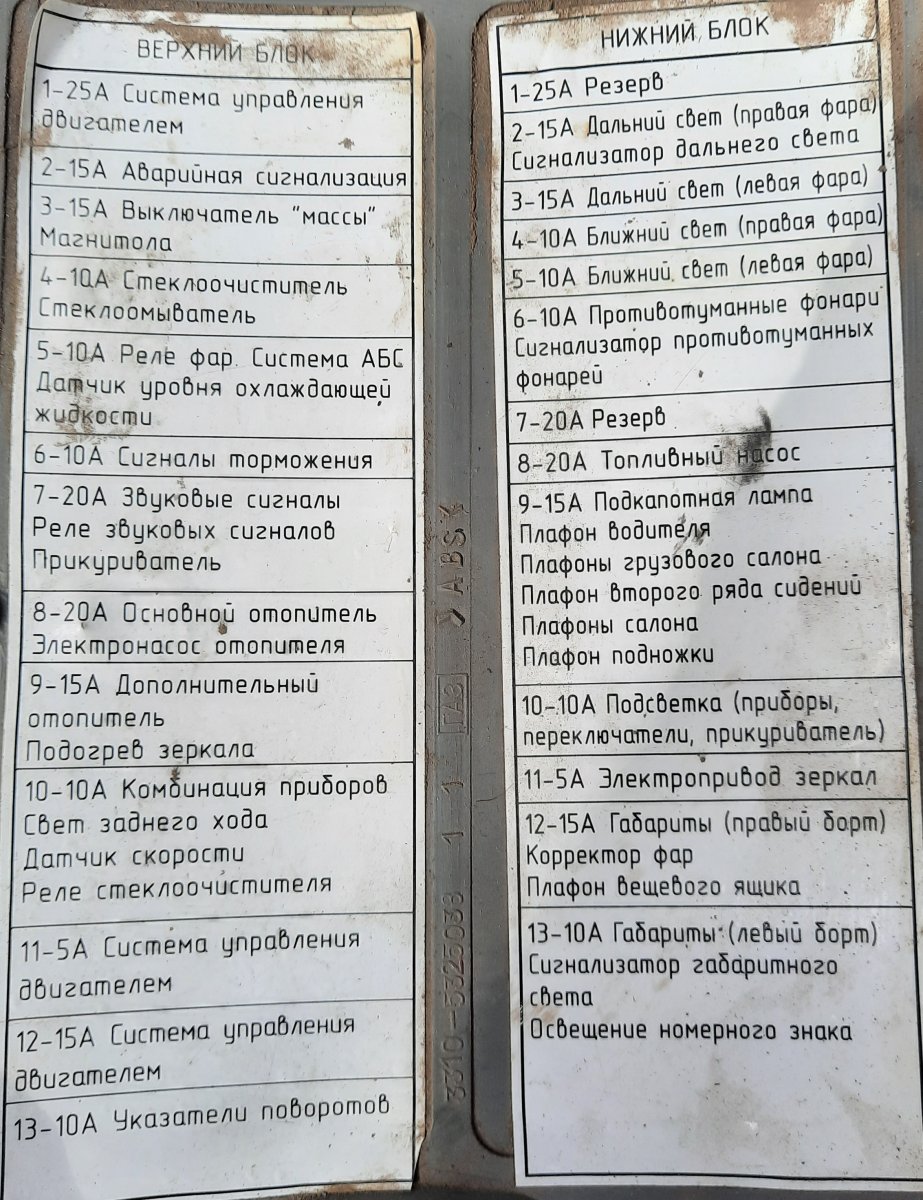 ВЕРХНИЙ БЛОК
1-25А Система управления
двигателем
2-15А Аварийная сигнализация
3-15А Выключатель "массы"
Магнитола
4-10А Стеклоочиститель
Стеклоомыватель
5-10А Реле фар. Система АБС
Датчик уровня охлаждающей
жидкости
6-10А Сигналы торможения
7-20А Звуковые сигналы
Реле звуковых сигналов
Прикуриватель
8-20А Основной отопитель
Электронасос отопителя
9-15А Дополнительный
отопитель
Подогрев зеркала
10-10А Комбинация приборов
Свет заднего хода
Датчик скорости
Реле стеклоочистителя
11-5А Система управления
двигателем
12-15А Система управления
двигателем
13-10А Указатели поворотов
3310-5325033 1 1 ГАЗ >ABS<
НИЖНИЙ БЛОК
1-25А Резерв
2-15А Дальний свет (правая фара)
Сигнализатор дальнего света
3-15А Дальний свет (левая фара)
4-10А Ближний свет (правая фара)
5-10А Ближний свет (левая фара)
6-10А Противотуманные фонари
Сигнализатор противотуманных
фонарей
7-20А Резерв
8-20А Топливный насос
9-15А Подкапотная лампа
Плафон водителя
Плафоны грузового салона
Плафон второго ряда сидений
Плафоны салона
Плафон подножки
10-10А Подсветка (приборы,
переключатели, прикуриватель)
11-5А Электропривод зеркал
12-15А Габариты (правый борт)
Корректор фар
Плафон вещевого ящика
13-10А Габариты (левый борт)
Сигнализатор габаритного
света
Освещение номерного знака